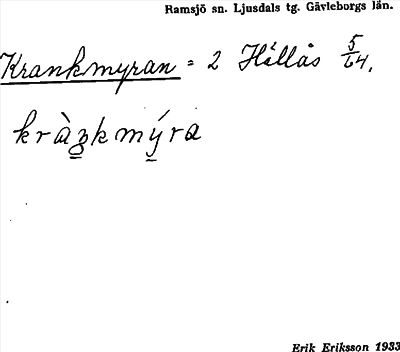 Ramsjö sn. Ljusdals tg. Gävleborgs län.
Krankmyran = 2 Hållås 5/64.
Erik Eriksson 1933